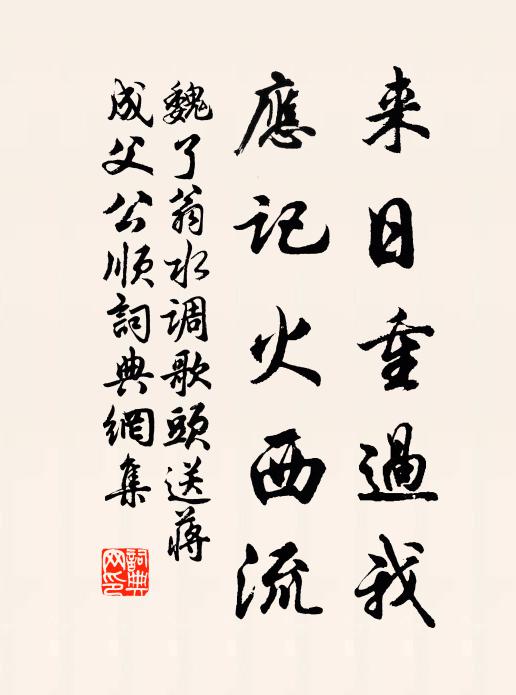 来日重過我
應記火西流
魏了翁水调歌頭送蒋
成父公顺詞典網集
詞典網印